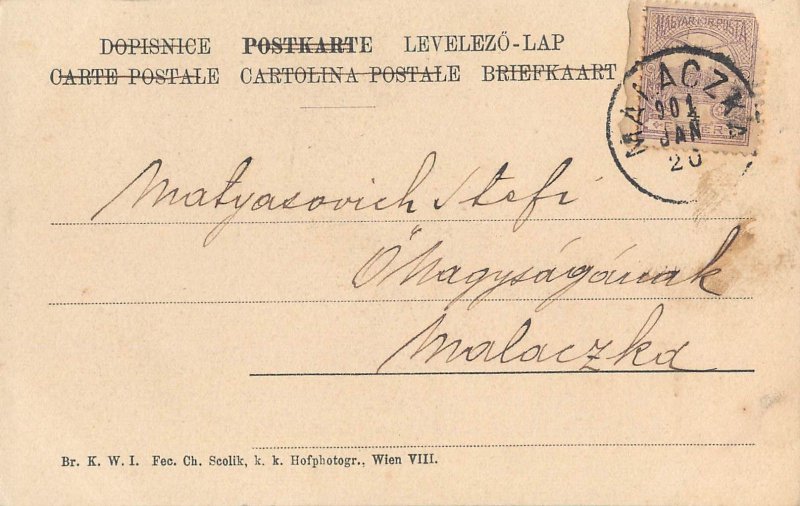 DOPISNICE POSTKARTE LEVELEZŐ-LAP
CARTE POSTALE CARTOLINA POSTALE BRIEFKAART
MAGYAR KIR. POSTA
MALACZKA
901
JAN
20
Matyasovich Stefi
Őnagyságának
Malaczka
Br. K. W. I. Fec. Ch. Scolik, k. k. Hofphotogr., Wien VIII.